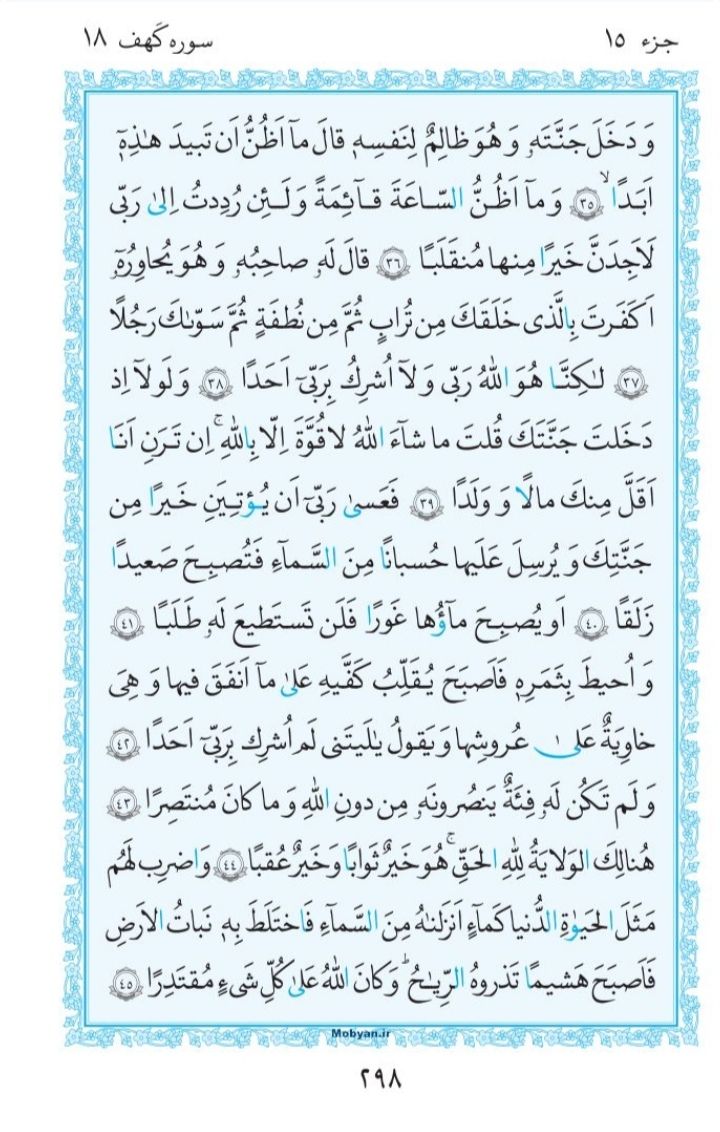 جزء ۱۵
سوره کَهف ۱۸
وَ دَخَلَ جَنَّتَهٗ وَ هُوَ ظالِمٌ لِنَفسِهٖ قالَ مآ اَظُنُّ اَن تَبيدَ هٰذِهٖٓ
اَبَدًا ۙ ٣٥ وَ مآ اَظُنُّ السّاعَةَ قآئِمَةً وَ لَئِن رُدِدتُ اِلىٰ رَبّى
لَاَجِدَنَّ خَيرًا مِنها مُنقَلَبًا ٣٦ قالَ لَهٗ صاحِبُهٗ وَ هُوَ يُحاوِرُهٗٓ
اَكَفَرتَ بِالَّذى خَلَقَكَ مِن تُرابٍ ثُمَّ مِن نُطفَةٍ ثُمَّ سَوّىٰكَ رَجُلًا
٣٧ لٰكِنَّا هُوَ اللّٰهُ رَبّى وَ لآ اُشرِكُ بِرَبّىٓ اَحَدًا ٣٨ وَ لَولآ اِذ
دَخَلتَ جَنَّتَكَ قُلتَ ما شآءَ اللّٰهُ لا قُوَّةَ اِلّا بِاللّٰهِ ۚ اِن تَرَنِ اَنَا
اَقَلَّ مِنكَ مالًا وَ وَلَدًا ٣٩ فَعَسىٰ رَبّىٓ اَن يُؤتِيَنِ خَيرًا مِن
جَنَّتِكَ وَ يُرسِلَ عَلَيها حُسبانًا مِنَ السَّمآءِ فَتُصبِحَ صَعيدًا
زَلَقًا ٤٠ اَو يُصبِحَ مآؤُها غَورًا فَلَن تَستَطيعَ لَهٗ طَلَبًا ٤١
وَ اُحيطَ بِثَمَرِهٖ فَاَصبَحَ يُقَلِّبُ كَفَّيهِ عَلىٰ مآ اَنفَقَ فيها وَ هِىَ
خاوِيَةٌ عَلىٰ عُروشِها وَ يَقولُ يٰلَيتَنى لَم اُشرِك بِرَبّىٓ اَحَدًا ٤٢
وَ لَم تَكُن لَهٗ فِئَةٌ يَنصُرونَهٗ مِن دونِ اللّٰهِ وَ ما كانَ مُنتَصِرًا ٤٣
هُنالِكَ الوَلايَةُ لِلّٰهِ الحَقِّ ۚ هُوَ خَيرٌ ثَوابًا وَ خَيرٌ عُقبًا ٤٤ وَ اضرِب لَهُم
مَثَلَ الحَيٰوةِ الدُّنيا كَمآءٍ اَنزَلنٰهُ مِنَ السَّمآءِ فَاختَلَطَ بِهٖ نَباتُ الاَرضِ
فَاَصبَحَ هَشيمًا تَذروهُ الرِّيٰحُ ۗ وَ كانَ اللّٰهُ عَلىٰ كُلِّ شَىءٍ مُقتَدِرًا ٤٥
Mobyan.ir
۲۹۸